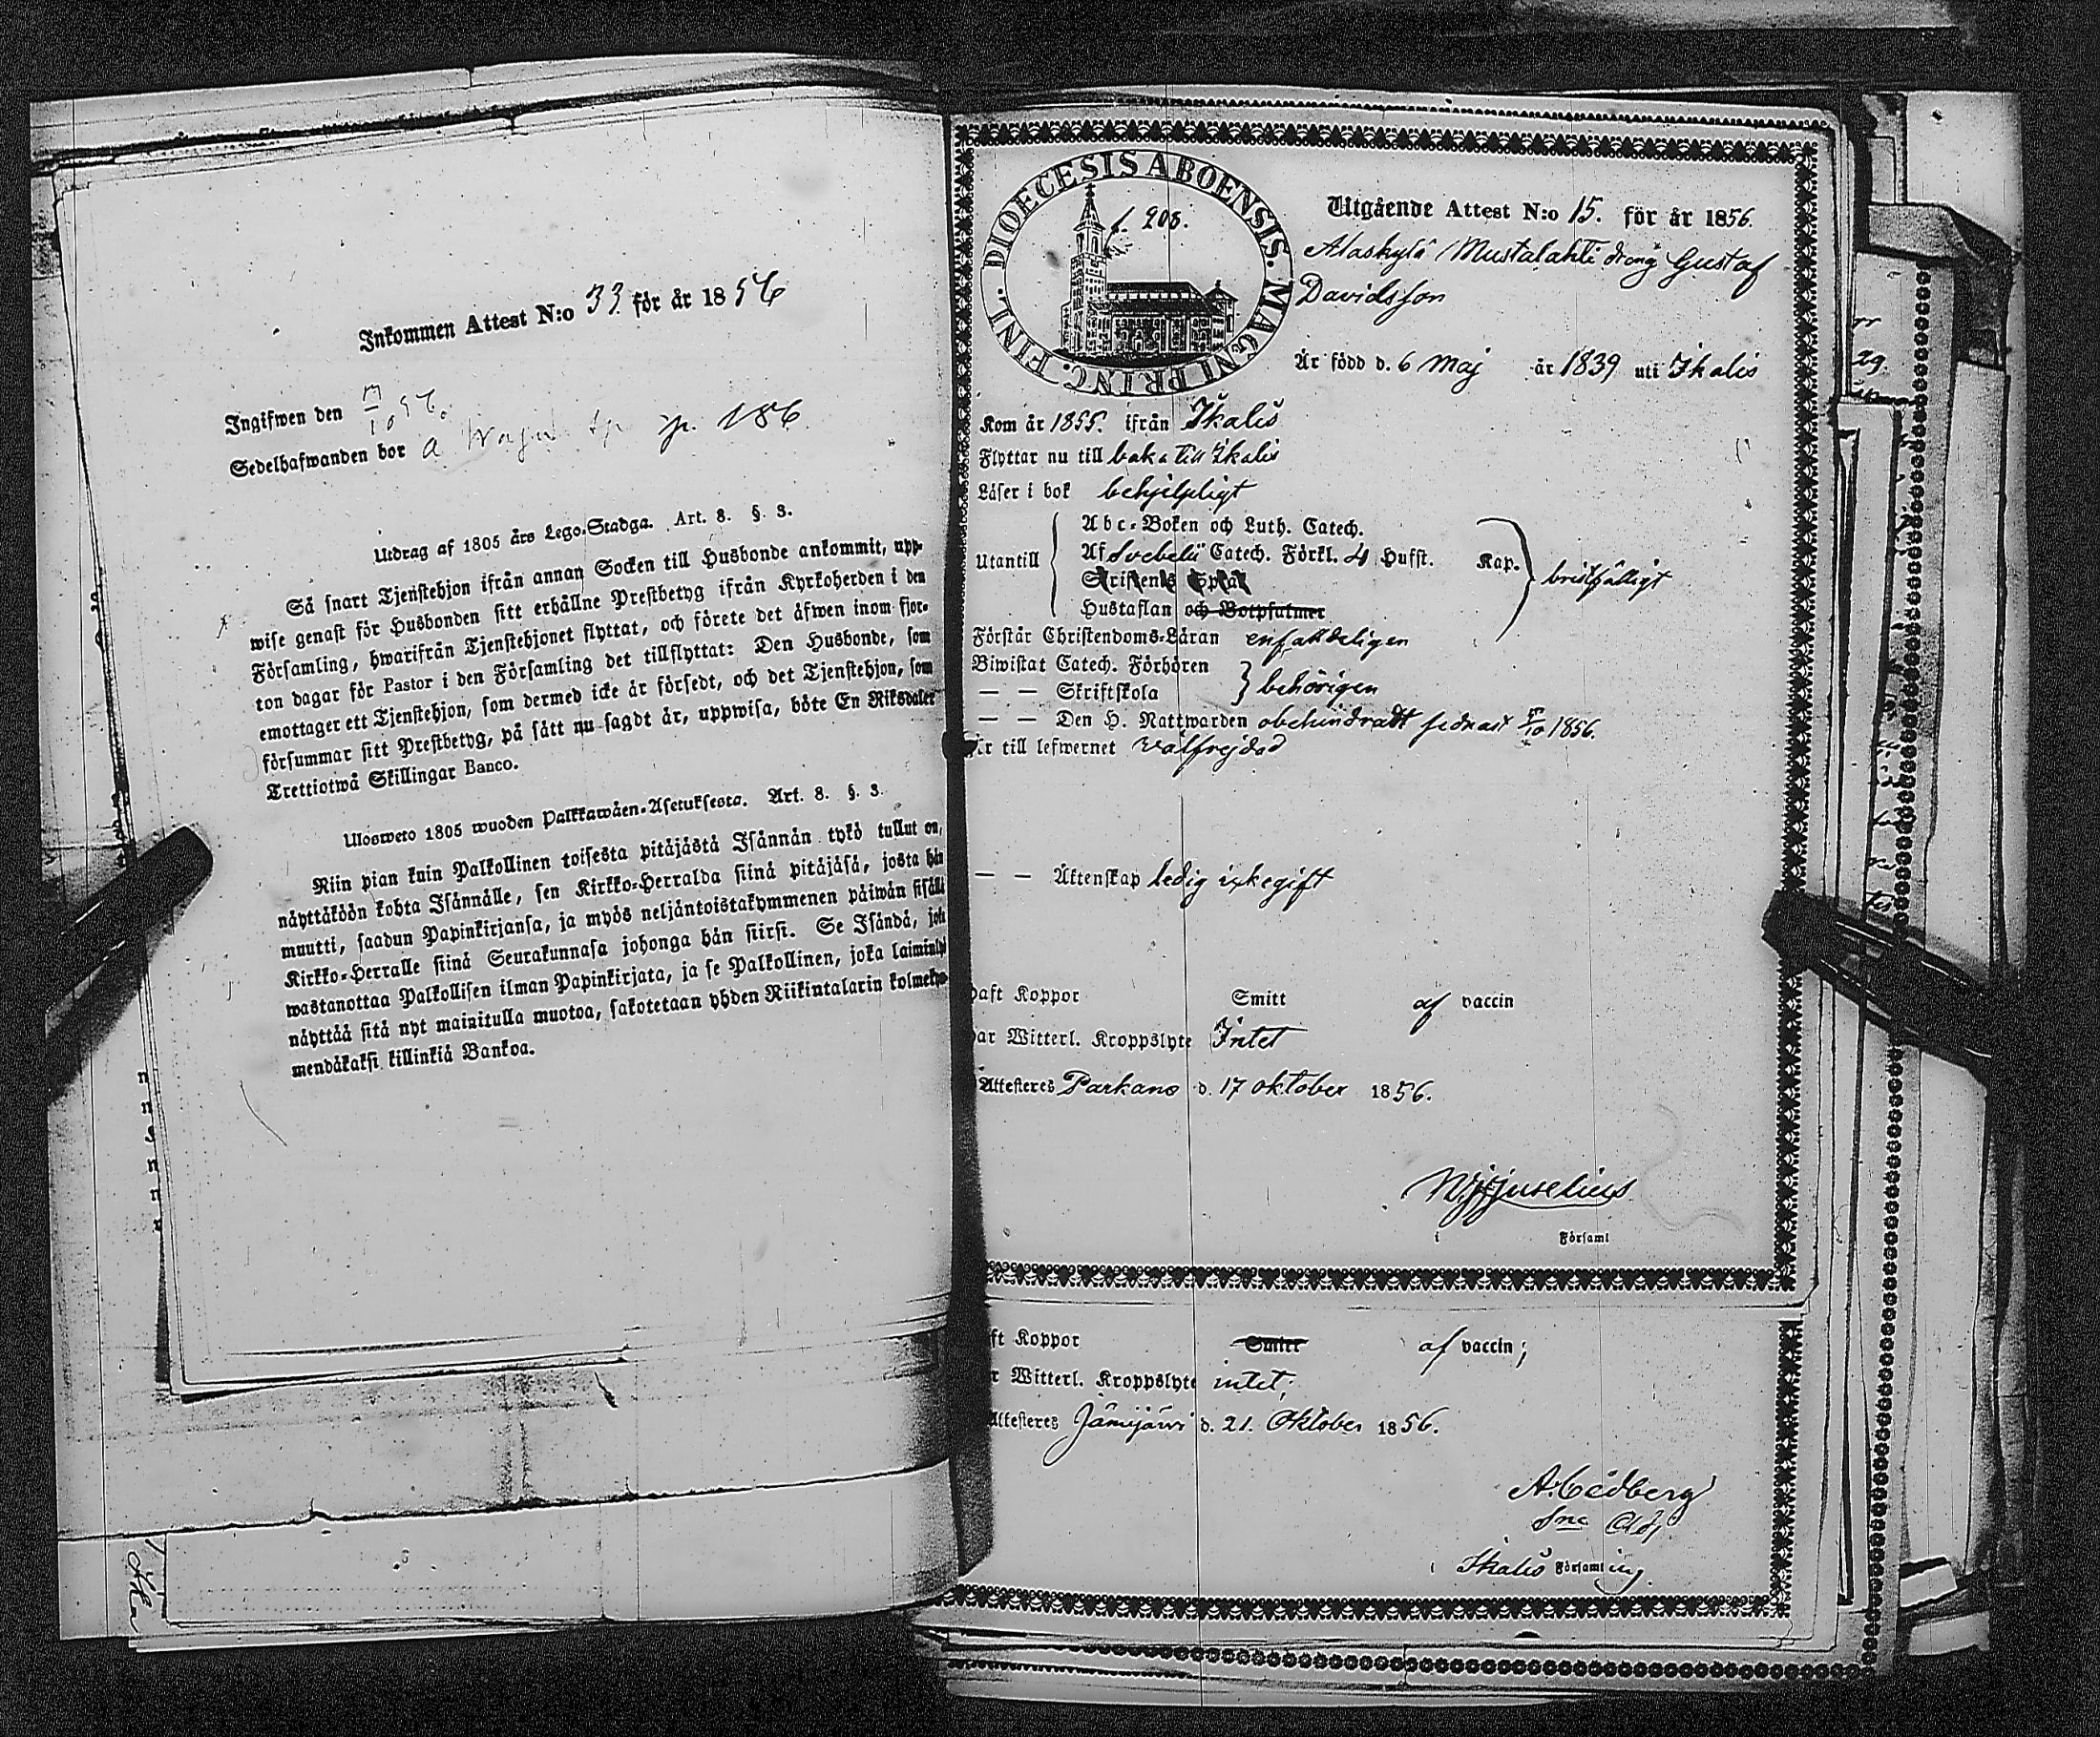 Inkommen Attest N:o 33 för år 1856
Ingifwen den
Sedelhafwanden bor a p. 186
Utdrag af 1805 års Lego-Stadga. Art. 8. §. 3.
Så snart Tjenstehjon ifrån annan Socken till Husbonde ankommit, upp-
wise genast för Husbonden sitt erhållne Prestbetyg ifrån Kyrkoherden i den
Församling, hwarifrån Tjenstehjonet flyttat, och förete det äfwen inom fjor-
ton dagar för Pastor i den Församling det tillflyttat: Den Husbonde, som
emottager ett Tjenstehjon, som dermed icke är försedt, och det Tjenstehjon, som
försummar sitt Prestbetyg, på sätt nu sagdt är, uppwisa, böte En Riksdaler
Trettiotwå Skillingar Banco.
Ulosweto 1805 wuoden Palkkawäen-Asetuksesta. Art. 8. §. 3.
Niin pian kuin Palkollinen toisesta pitäjästä Isännän tykö tullut on,
näyttäköön kohta Isännälle, sen Kirkko-Herralda siinä pitäjäsä, josta hän
muutti, saadun Papinkirjansa, ja myös neljäntoistakymmenen päiwän sisällä
Kirkko-Herralle siinä Seurakunnasa johonga hän siirsi. Se Isändä, joka
wastanottaa Palkollisen ilman Papinkirjata, ja se Palkollinen, joka laiminly
näyttää sitä nyt mainitulla muotoa, sakotetaan yhden Riikintalarin kolmeky-
mendäkaksi killinkiä Bankoa.
DIOECESIS ABOENSIS. MAGNI PRINC. FINL.
f. 908.
Utgående Attest N:o 15. för år 1856.
Alaskylä Mustalahti dräng Gustaf
Davidsson
Är född d. 6 Maj år 1839 uti Ikalis
Kom år 1855. ifrån Ikalis
Flyttar nu till baka till Ikalis
Läser i bok behjelpligt
Utantill
Abc-Boken och Luth. Catech.
Af Svebelii Catech. Förkl. 4 Hufst. Kap.
Skriftens Språk
Hustaflan och Botpsalmer
bristfälligt
Förstår Christendoms-Läran enfaldeligen
Biwistat Catech. Förhören
— — Skriftskola
behörigen
— — Den H. Nattwarden obehindradt sednast 5/10 1856.
Är till lefwernet wälfrejdad
— — Äktenskap ledig ickegift
haft Koppor Smitt af vaccin
har Witterl. Kroppslyte Intet
Attesteres Parkano d. 17 oktober 1856.
Juselius
i Församl
ft Koppor Smitt af vaccin;
r Witterl. Kroppslyte intet;
Attesteres Jämijärvi d. 21. Oktober 1856.
A. Cedberg
Sne Adj
i Ikalis Församling.